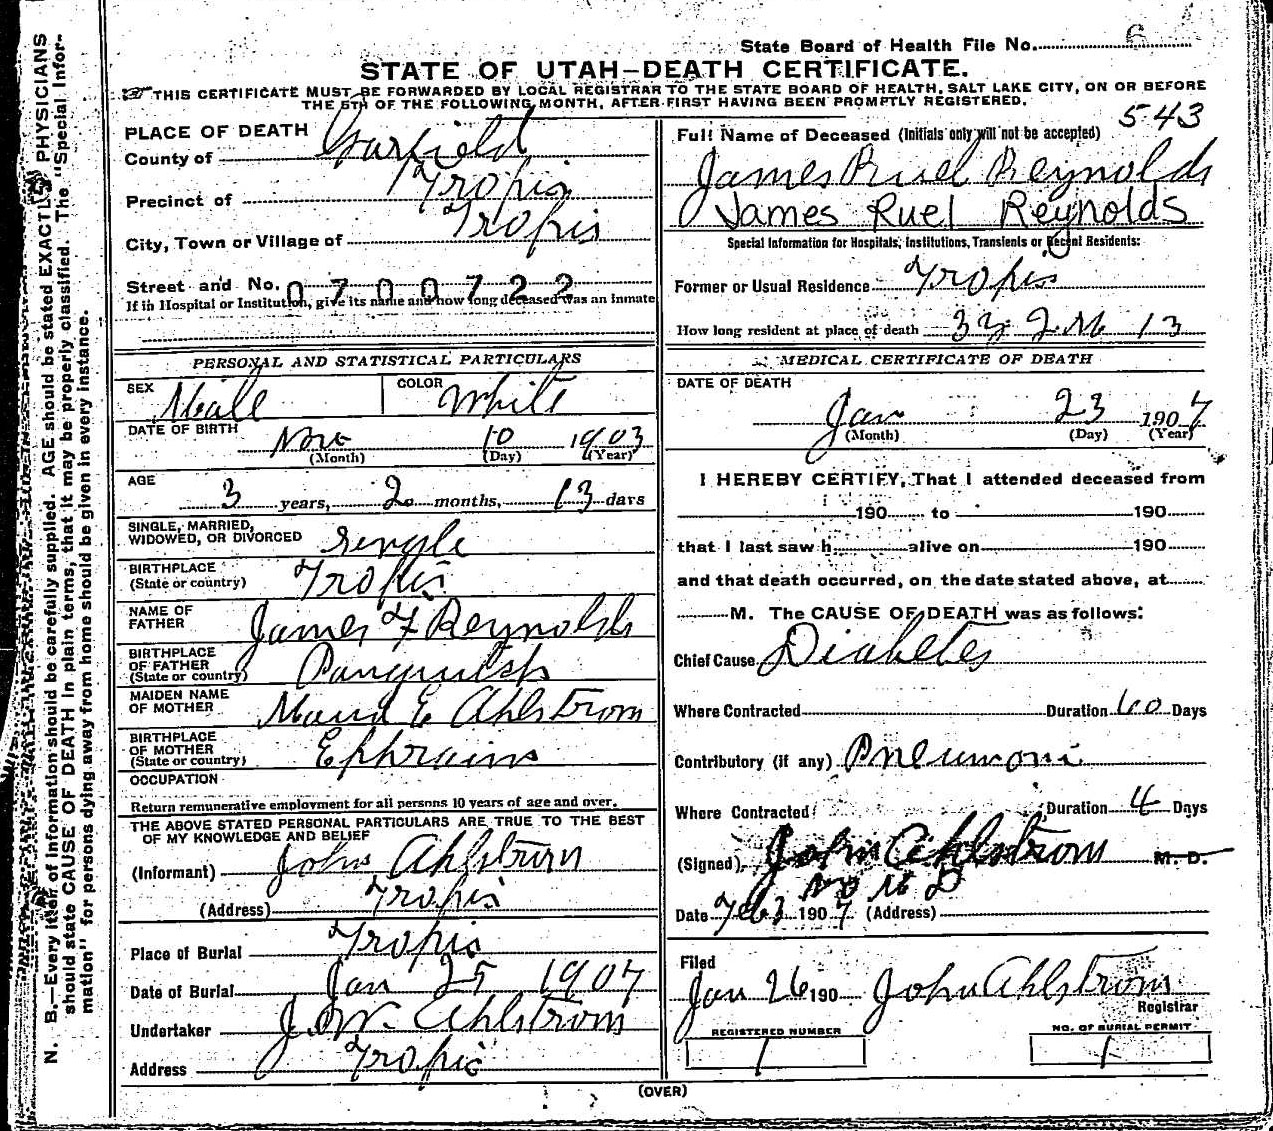 State Board of Health File No. 6
STATE OF UTAH—DEATH CERTIFICATE.
THIS CERTIFICATE MUST BE FORWARDED BY LOCAL REGISTRAR TO THE STATE BOARD OF HEALTH, SALT LAKE CITY, ON OR BEFORE
THE 5TH OF THE FOLLOWING MONTH, AFTER FIRST HAVING BEEN PROMPTLY REGISTERED.
N. B.—Every item of information should be carefully supplied. AGE should be stated EXACTLY. PHYSICIANS
should state CAUSE OF DEATH in plain terms, that it may be properly classified. The "Special Infor-
mation" for persons dying away from home should be given in every instance.
PLACE OF DEATH
County of Garfield
Precinct of Tropic
City, Town or Village of Tropic
Street and No. 0700722
If in Hospital or Institution, give its name and how long deceased was an Inmate
PERSONAL AND STATISTICAL PARTICULARS
SEX Male COLOR White
DATE OF BIRTH Nov 10 1903
(Month) (Day) (Year)
AGE 3 years, 2 months, 13 days
SINGLE, MARRIED,
WIDOWED, OR DIVORCED Single
BIRTHPLACE
(State or country) Tropic
NAME OF
FATHER James F Reynolds
BIRTHPLACE
OF FATHER
(State or country) Panguitch
MAIDEN NAME
OF MOTHER Maud E Ahlstrom
BIRTHPLACE
OF MOTHER
(State or country) Ephraim
OCCUPATION
Return remunerative employment for all persons 10 years of age and over.
THE ABOVE STATED PERSONAL PARTICULARS ARE TRUE TO THE BEST
OF MY KNOWLEDGE AND BELIEF
(Informant) John Ahlstrom
(Address) Tropic
Place of Burial Tropic
Date of Burial Jan 25 1907
Undertaker Ahlstrom
Address Tropic
543
Full Name of Deceased (Initials only will not be accepted)
James Ruel Reynolds
James Ruel Reynolds
Special Information for Hospitals, Institutions, Transients or Recent Residents:
Former or Usual Residence Tropic
How long resident at place of death 3 y 2 M 13
MEDICAL CERTIFICATE OF DEATH
DATE OF DEATH
Jan 23 1907
(Month) (Day) (Year)
I HEREBY CERTIFY, That I attended deceased from
190 to 190
that I last saw h alive on 190
and that death occurred, on the date stated above, at
M. The CAUSE OF DEATH was as follows:
Chief Cause Diabetes
Where Contracted Duration 60 Days
Contributory (if any) Pneumoni
Where Contracted Duration 4 Days
(Signed) John Ahlstrom M. D.
no M D
Date Feb 1907 (Address)
Filed
Jan 26 190 John Ahlstrom
Registrar
REGISTERED NUMBER NO. OF BURIAL PERMIT
1 1
(OVER)